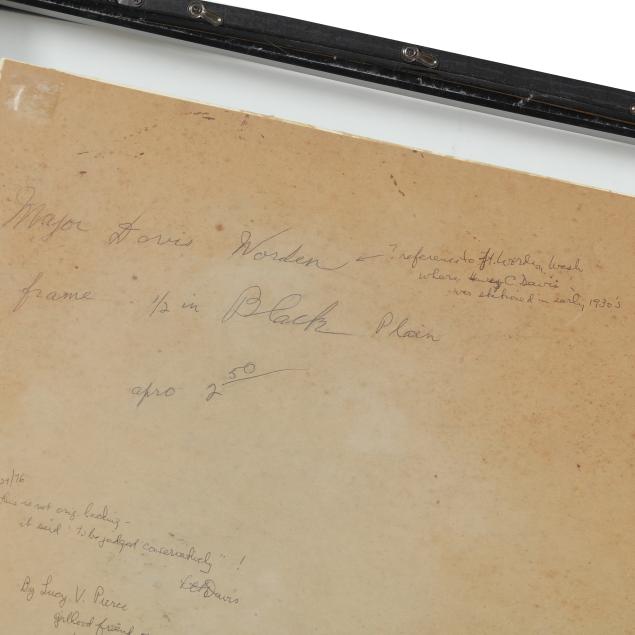 Major Davis Worden ← ? reference to Ft. Worden, Wash
where C. Davis
was stationed in early 1930's
frame 1/2 in Black Plain
apro 2 50
/76
this is not orig backing -
it said "to be judged conservatively"!
Davis
By Lucy V. Pierce
girlhood friend